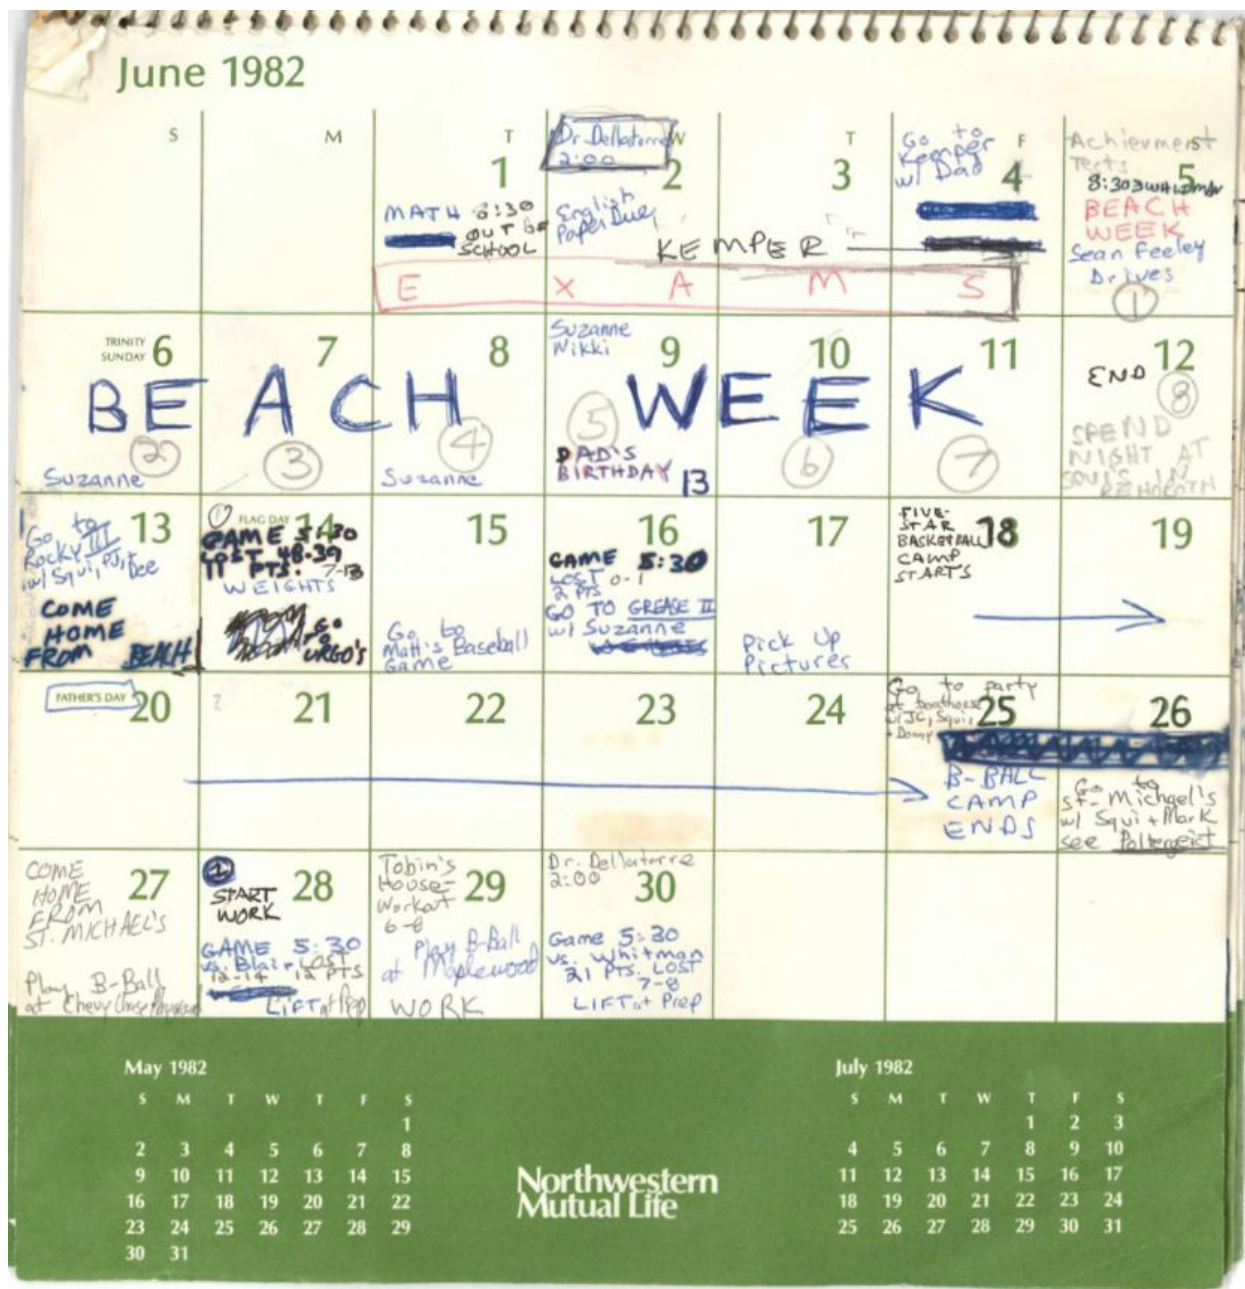 June 1982
S M T W T F S
1
MATH 8:30
OUT OF
SCHOOL
Dr. Dellatorre
2:00
2
English
Paper Due
3
KEMPER
Go to
Kemper
w/ Dad
4
E X A M S
Achievmemst
Tests
5
8:30
BEACH
WEEK
Sean Feeley
Drives
1
TRINITY
SUNDAY 6
BEACH WEEK
2
Suzanne
7
3
8
4
Suzanne
Suzanne
Nikki
9
5
DAD'S
BIRTHDAY
13
10
6
11
7
12
END
8
SPEND
NIGHT AT
SQUI'S IN
REHOBOTH
13
Go to
Rocky III
w/ Squi, PJ,
Dee
COME
HOME
FROM BEACH
1
FLAG DAY 14
GAME 5:30
LOST 48-39
11 PTS. 7-13
WEIGHTS
GO
TO
URGO'S
15
Go to
Matt's Baseball
Game
16
GAME 5:30
LOST 0-1
2 PTS
GO TO GREASE II
w/ Suzanne
17
Pick Up
Pictures
FIVE-
STAR
BASKETBALL 18
CAMP
STARTS
19
FATHER'S DAY 20
21
22
23
24
Go to party
at boathouse
w/ JC, Squi,
+ Donny
25
B-BALL
CAMP
ENDS
26
Go to
St. Michael's
w/ Squi + Mark
see Poltergeist
COME
HOME 27
FROM
ST. MICHAEL'S
Play B-Ball
at Chevy Chase
START 28
WORK
GAME 5:30
vs. Blair LOST
12-14 12 PTS
LIFT at Prep
Tobin's
House- 29
Workout
6-8
Play B-Ball
at Maplewood
WORK
Dr. Dellatorre
2:00 30
Game 5:30
vs. Whitman
21 PTS. LOST
7-8
LIFT at Prep
May 1982
S M T W T F S
1
2 3 4 5 6 7 8
9 10 11 12 13 14 15
16 17 18 19 20 21 22
23 24 25 26 27 28 29
30 31
Northwestern
Mutual Life
July 1982
S M T W T F S
1 2 3
4 5 6 7 8 9 10
11 12 13 14 15 16 17
18 19 20 21 22 23 24
25 26 27 28 29 30 31